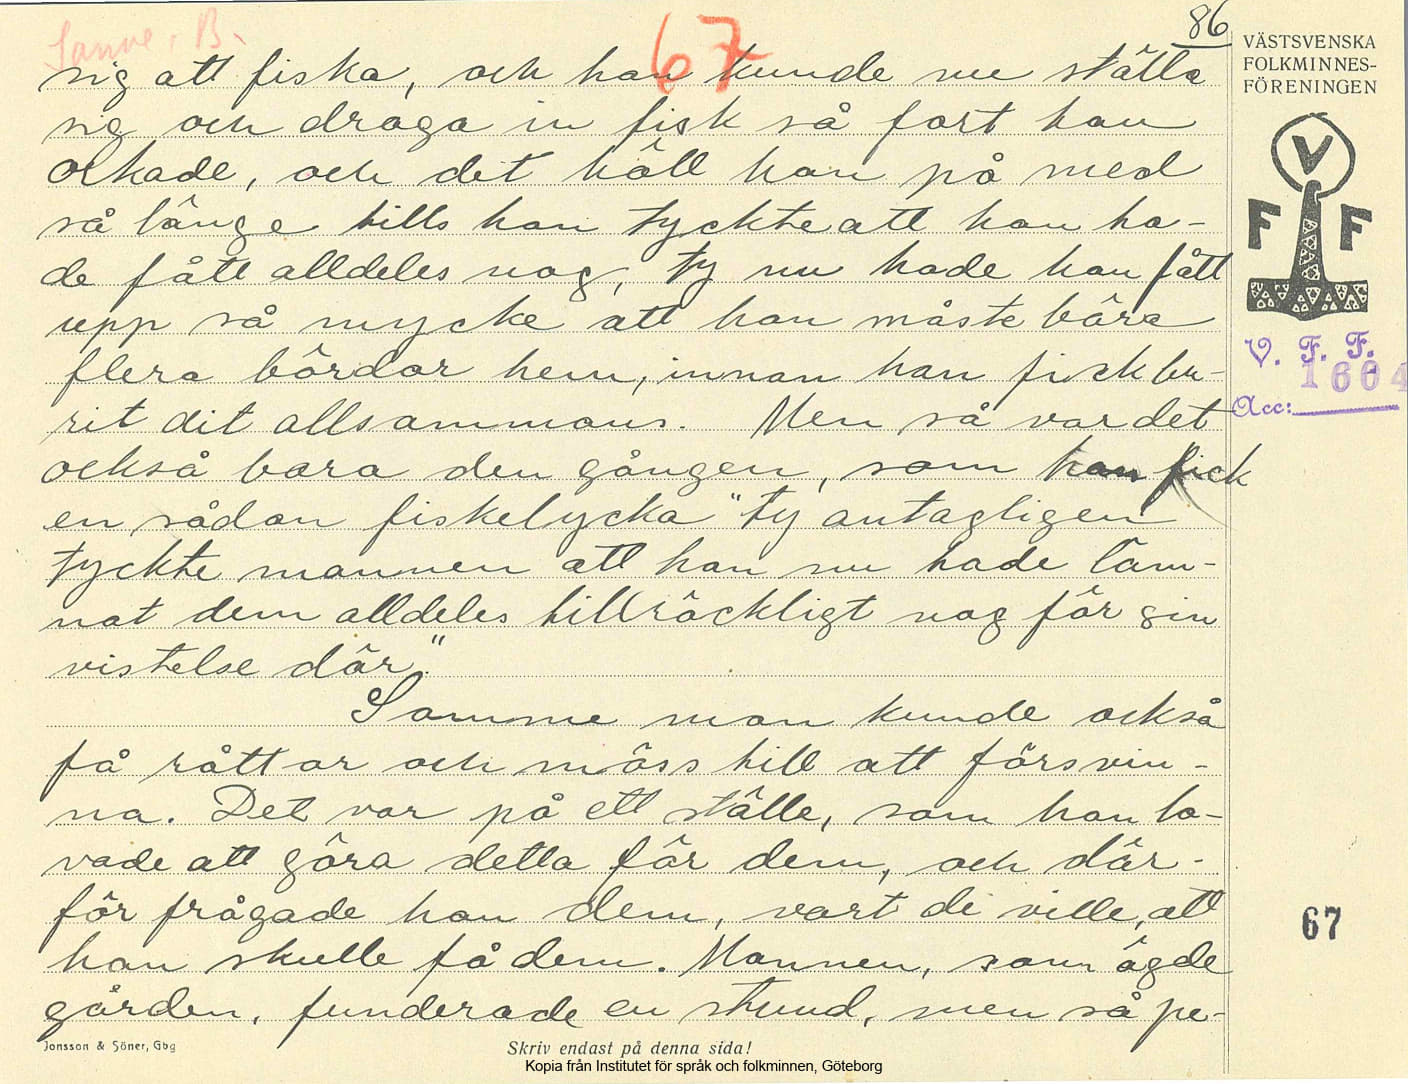 Sanne, B.
67
86
VÄSTSVENSKA
FOLKMINNES-
FÖRENINGEN
V
F F
V. F. F.
1604
Acc:
sig att fiska, och han kunde nu ställa
sig och draga in fisk så fort han
orkade, och det höll han på med
så länge tills han tyckte att han ha-
de fått alldeles nog, ty nu hade han fått
upp så mycke att han måste bära
flera bördor hem, innan han fick bu-
rit dit allsammans. Men så var det
också bara den gången, som han fick
en sådan fiskelycka "ty antagligen
tyckte mannen att han nu hade läm-
nat dem alldeles tillräckligt nog för sin
vistelse där."
Samme man kunde också
få råttor och möss till att försvin-
na. Det var på ett ställe, som han lo-
vade att göra detta för dem, och där-
för frågade han dem, vart di ville, att
han skulle få dem. Mannen, som ägde
gården, funderade en stund, men så pe-
67
Jonsson & Söner, Gbg
Skriv endast på denna sida!
Kopia från Institutet för språk och folkminnen, Göteborg